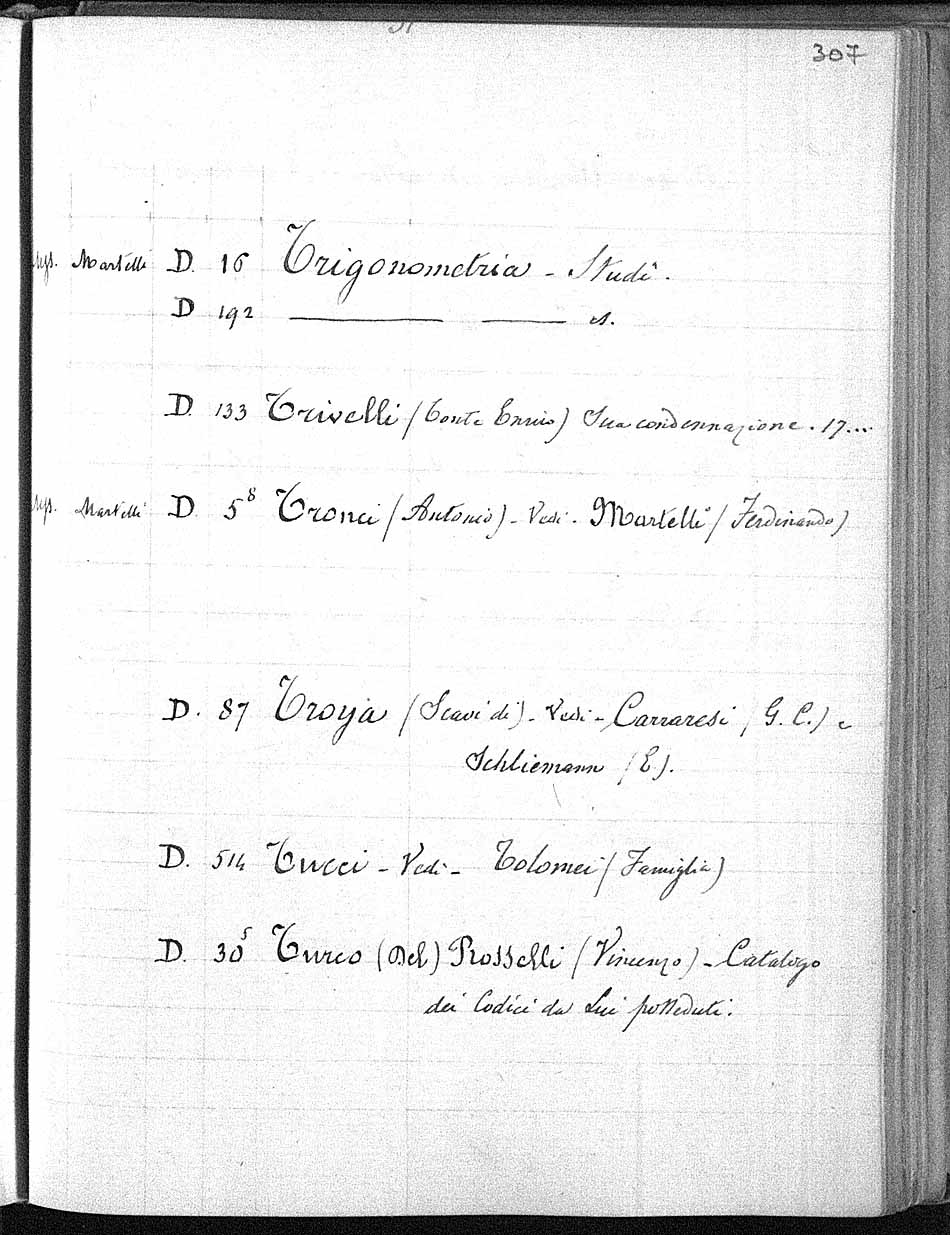 307
Martelli D. 16 Trigonometria - Studi.
D 192 ——— ——— id.
D. 133 Trivelli (Conte Ennio) Sua condennazione. 17...
Martelli D. 5⁸ Tronci (Antonio) - Vedi - Martelli (Ferdinando)
D. 87 Troya (Scavi di) - Vedi - Carraresi (G. C.) e
Schliemann (E).
D. 514 Tucci - Vedi - Tolomei (Famiglia)
D. 30⁵ Turco (Del) Rosselli (Vincenzo) - Catalogo
dei Codici da Lui posseduti.